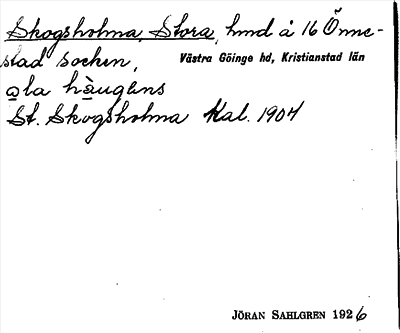 Skogsholma, Stora, hmd å 16 Önne-
stad socken, Västra Göinge hd, Kristianstad län
St. Skogsholma Kal. 1904
JÖRAN SAHLGREN 1926